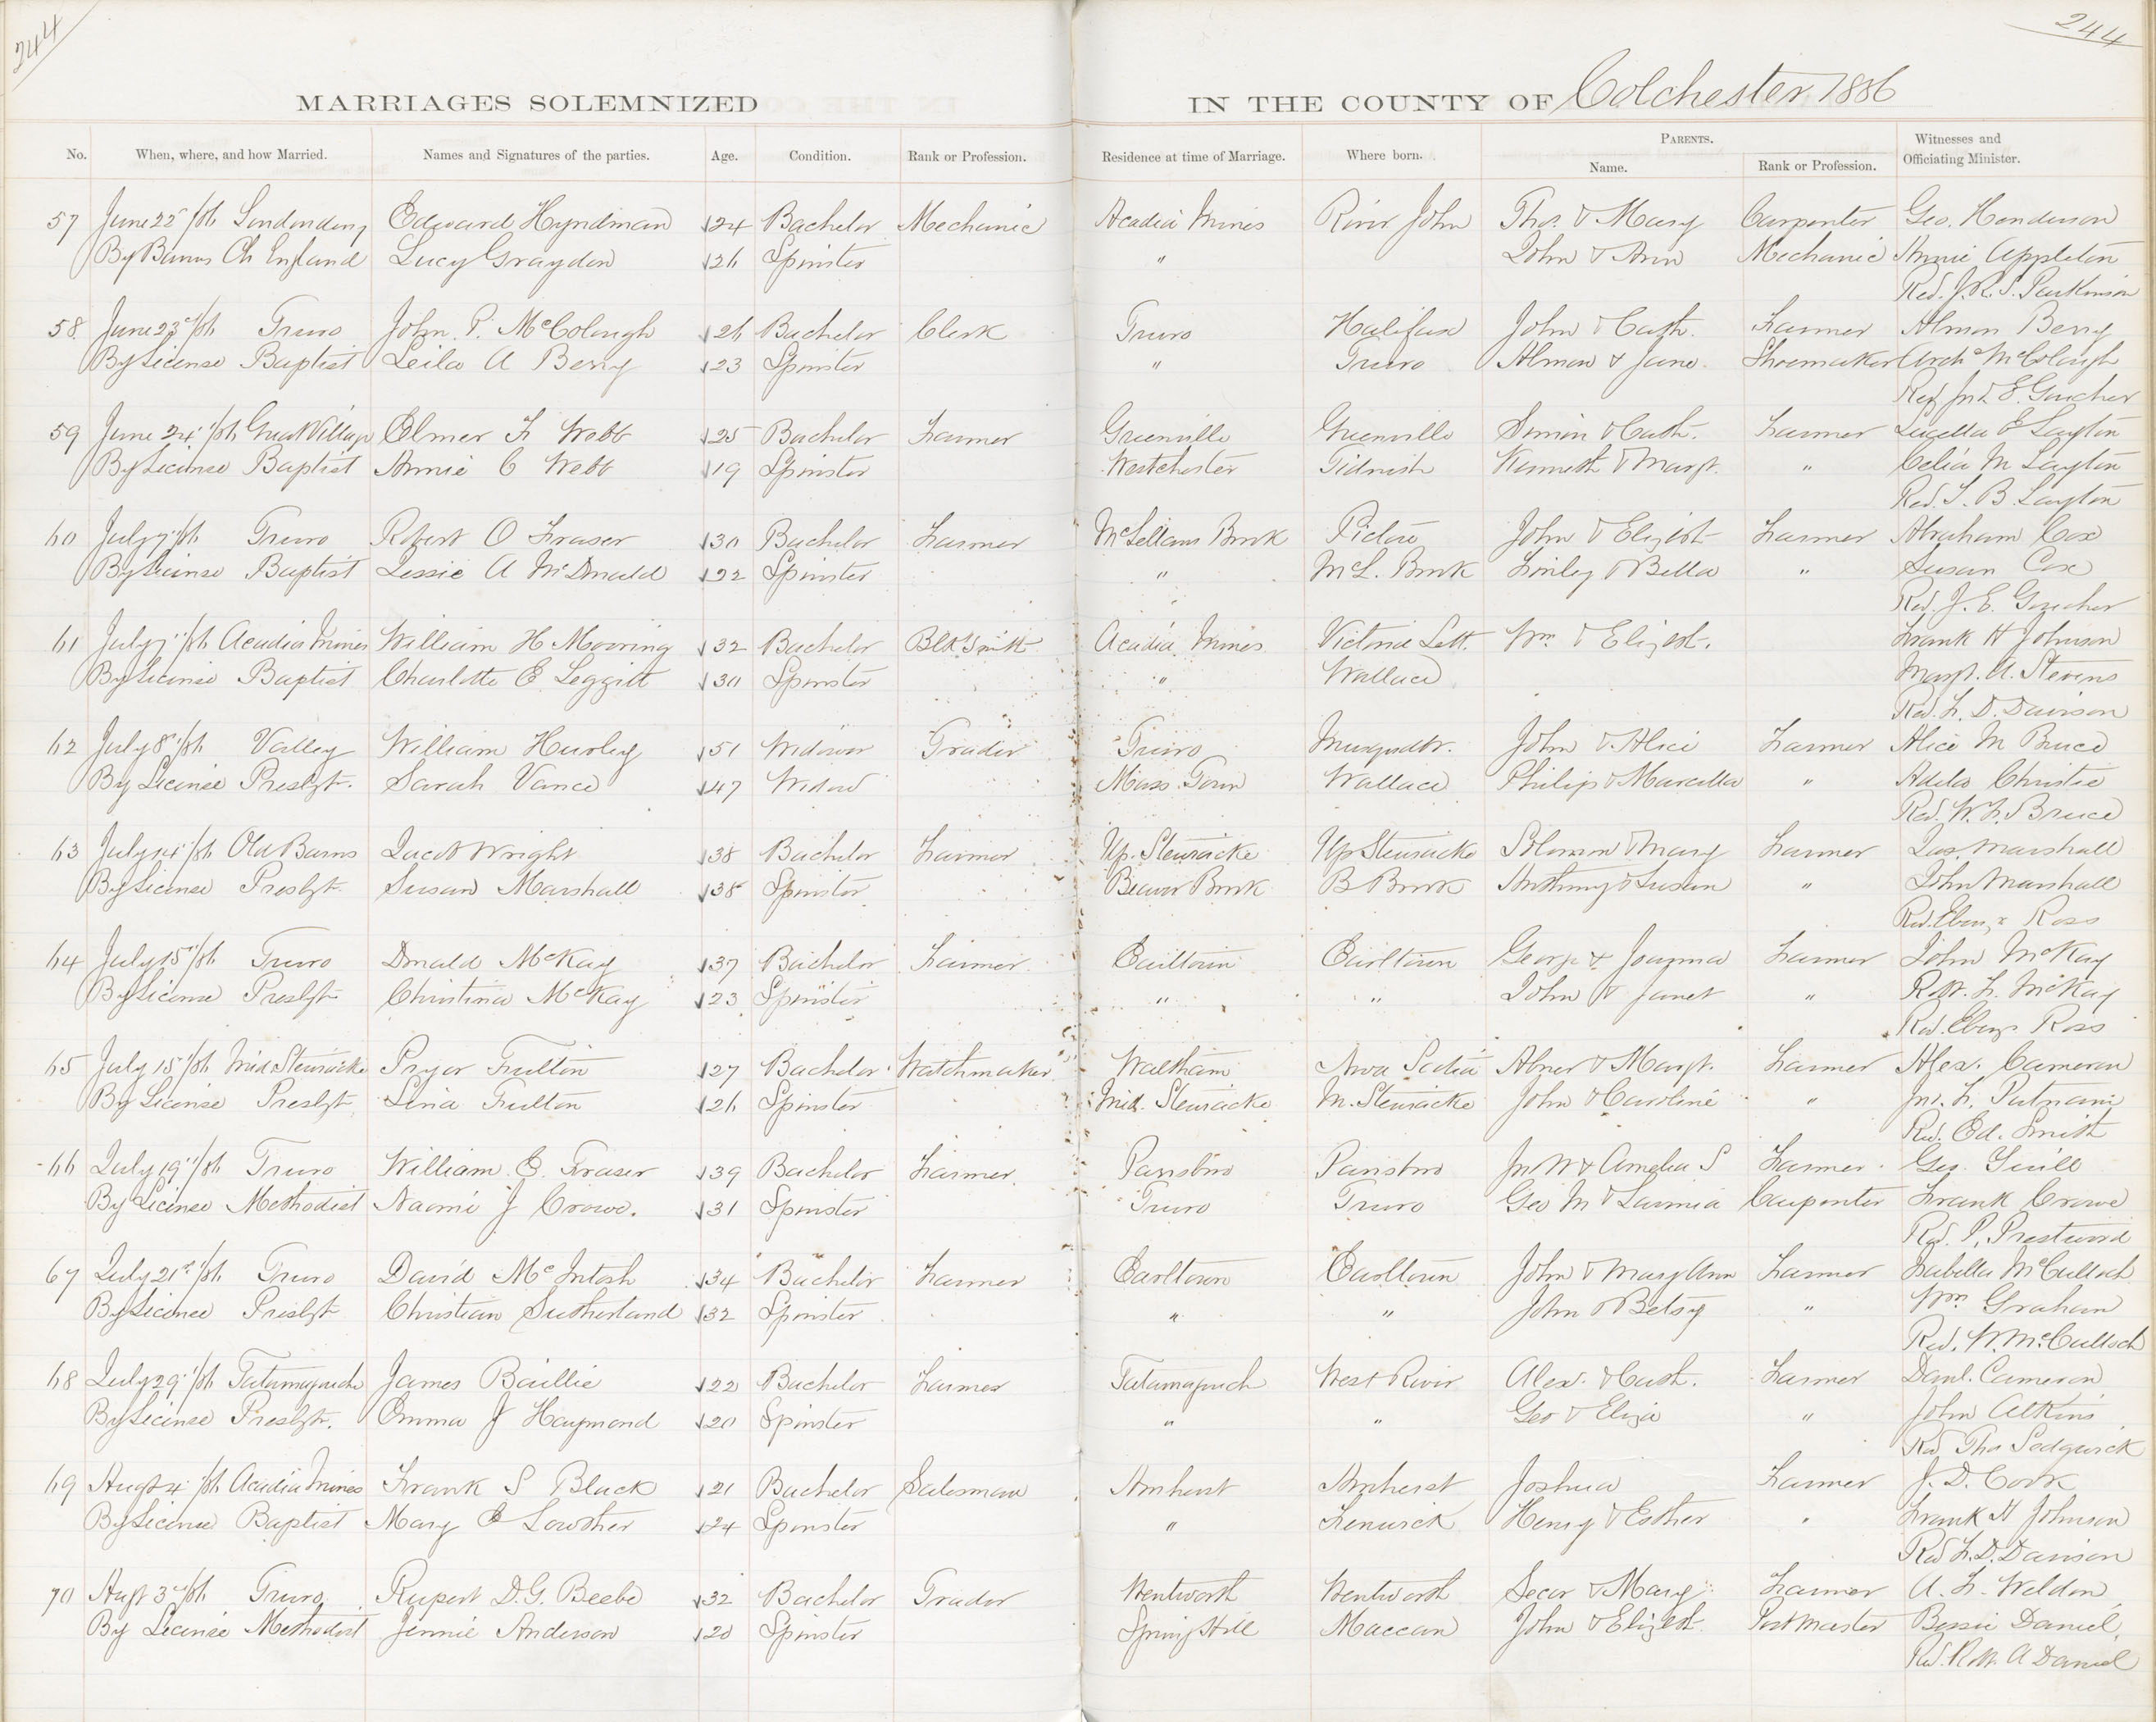 244
244
MARRIAGES SOLEMNIZED IN THE COUNTY OF Colchester 1886
No. When, where, and how Married. Names and Signatures of the parties. Age. Condition. Rank or Profession. Residence at time of Marriage. Where born. PARENTS. Name. Rank or Profession. Witnesses and Officiating Minister.
57 June 22 /86 Londonderry Edward Hyndman 24 Bachelor Mechanic Acadia Mines River John Thos. & Mary Carpenter Geo. Henderson
By Banns Ch England Lucy Graydon 26 Spinster " John & Ann Mechanic Annie Appleton
Rev. J. R. S. Parkinson
58 June 23 /86 Truro John P. McColough 26 Bachelor Clerk Truro Halifax John & Cath. Farmer Almon Berry
By License Baptist Leila A Berry 23 Spinster " Truro Almon & Jane Shoemaker Archd McColough
Rev Jno E. Goucher
59 June 24 /86 Great Village Elmer F Webb 25 Bachelor Farmer Greenville Greenville Simon & Cath. Farmer Luella E Layton
By License Baptist Annie C Webb 19 Spinster Westchester Tidnish Kenneth & Margt. " Celia M Layton
Rev. T. B. Layton
60 July 7 /86 Truro Robert O Fraser 30 Bachelor Farmer McLellans Brook Pictou John & Elizbt Farmer Abraham Cox
By License Baptist Lessie A McDonald 22 Spinster " McL. Brook Finley & Bella " Susan Cox
Rev. J. E. Goucher
61 July 7 /86 Acadia Mines William H Mooring 32 Bachelor Blk Smith Acadia Mines Victoria Sett. Wm & Elizbt. Frank H Johnson
By License Baptist Charlotte E Leggitt 30 Spinster " Wallace Margt. A. Stevens
Rev. F. D. Davison
62 July 8 /86 Valley William Hurley 51 Widower Trader Truro Musqudbt. John & Alice Farmer Alice M Bruce
By License Presbyt. Sarah Vance 47 Widow Mass. Town Wallace Philip & Marcella " Adda Christie
Rev. W. F. Bruce
63 July 14 /86 Old Barns Jacob Wright 38 Bachelor Farmer Up. Stewiacke Up Stewiacke Solomon & Mary Farmer Jas. Marshall
By License Presbyt Susan Marshall 38 Spinster Beaver Brook B Brook Anthony & Susan " John Marshall
Rev. Ebenzr Ross
64 July 15 /86 Truro Donald McKay 37 Bachelor Farmer Earltown Earltown George & Joanna Farmer John McKay
By License Presbyt Christina McKay 23 Spinster " " John & Janet " Robt. F. McKay
Rev. Ebenz. Ross
65 July 15 /86 Mid Stewiacke Pryor Fulton 27 Bachelor Watchmaker Waltham Nova Scotia Abner & Margt. Farmer Alex. Cameron
By License Presbyt Lina Fulton 26 Spinster Mid. Stewiacke M. Stewiacke John & Caroline " Jno. F. Putnam
Rev. Ed. Smith
66 July 19 /86 Truro William E. Fraser 39 Bachelor Farmer Parrsboro Parrsboro Jn W & Amelia S Farmer Geo.
By License Methodist Naomi J Crowe. 31 Spinster Truro Truro Geo M & Lavinia Carpenter Frank Crowe
Rev. P. Prestwood
67 July 21st /86 Truro David McIntosh 34 Bachelor Farmer Earltown Earltown John & Mary Ann Farmer Isabella McCulloch
By License Presbyt Christian Sutherland 32 Spinster " " John & Betsy " Wm Graham
Rev. W. McCulloch
68 July 29 /86 Tatamagouche James Baillie 22 Bachelor Farmer Tatamagouch West River Alex. & Cath. Farmer Danl. Cameron
By License Presbyt. Emma J Haymond 20 Spinster " " Geo & Eliza " John Atkins
Rev Thos Sedgwick
69 Augt 4 /86 Acadia Mines Frank S Black 21 Bachelor Salesman Amherst Amherst Joshua Farmer J. D. Cook
By License Baptist Mary E Lowther 24 Spinster " Fenwick Henry & Esther " Frank H Johnson
Rev F. D. Davison
70 Augt 3 /86 Truro Rupert D. G. Beebe 32 Bachelor Trader Wentworth Wentworth Secor & Mary Farmer A. F. Weldon
By License Methodist Jennie Anderson 20 Spinster Spring Hill Maccan John & Elizbt. Post Master Bessie Daniel,
Rev. Robt. A Daniel